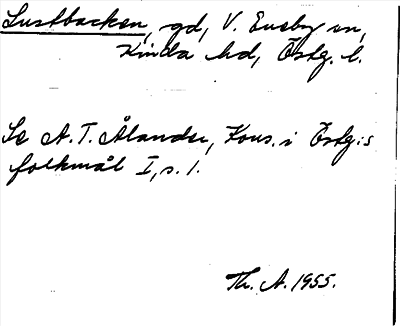 Lustbacken, gd, V. Eneby sn,
Kinda hd, Östg. l.
Se A. T. Ålander, Kons. i Östg:s
folkmål I, s. 1.
Th. A. 1955.